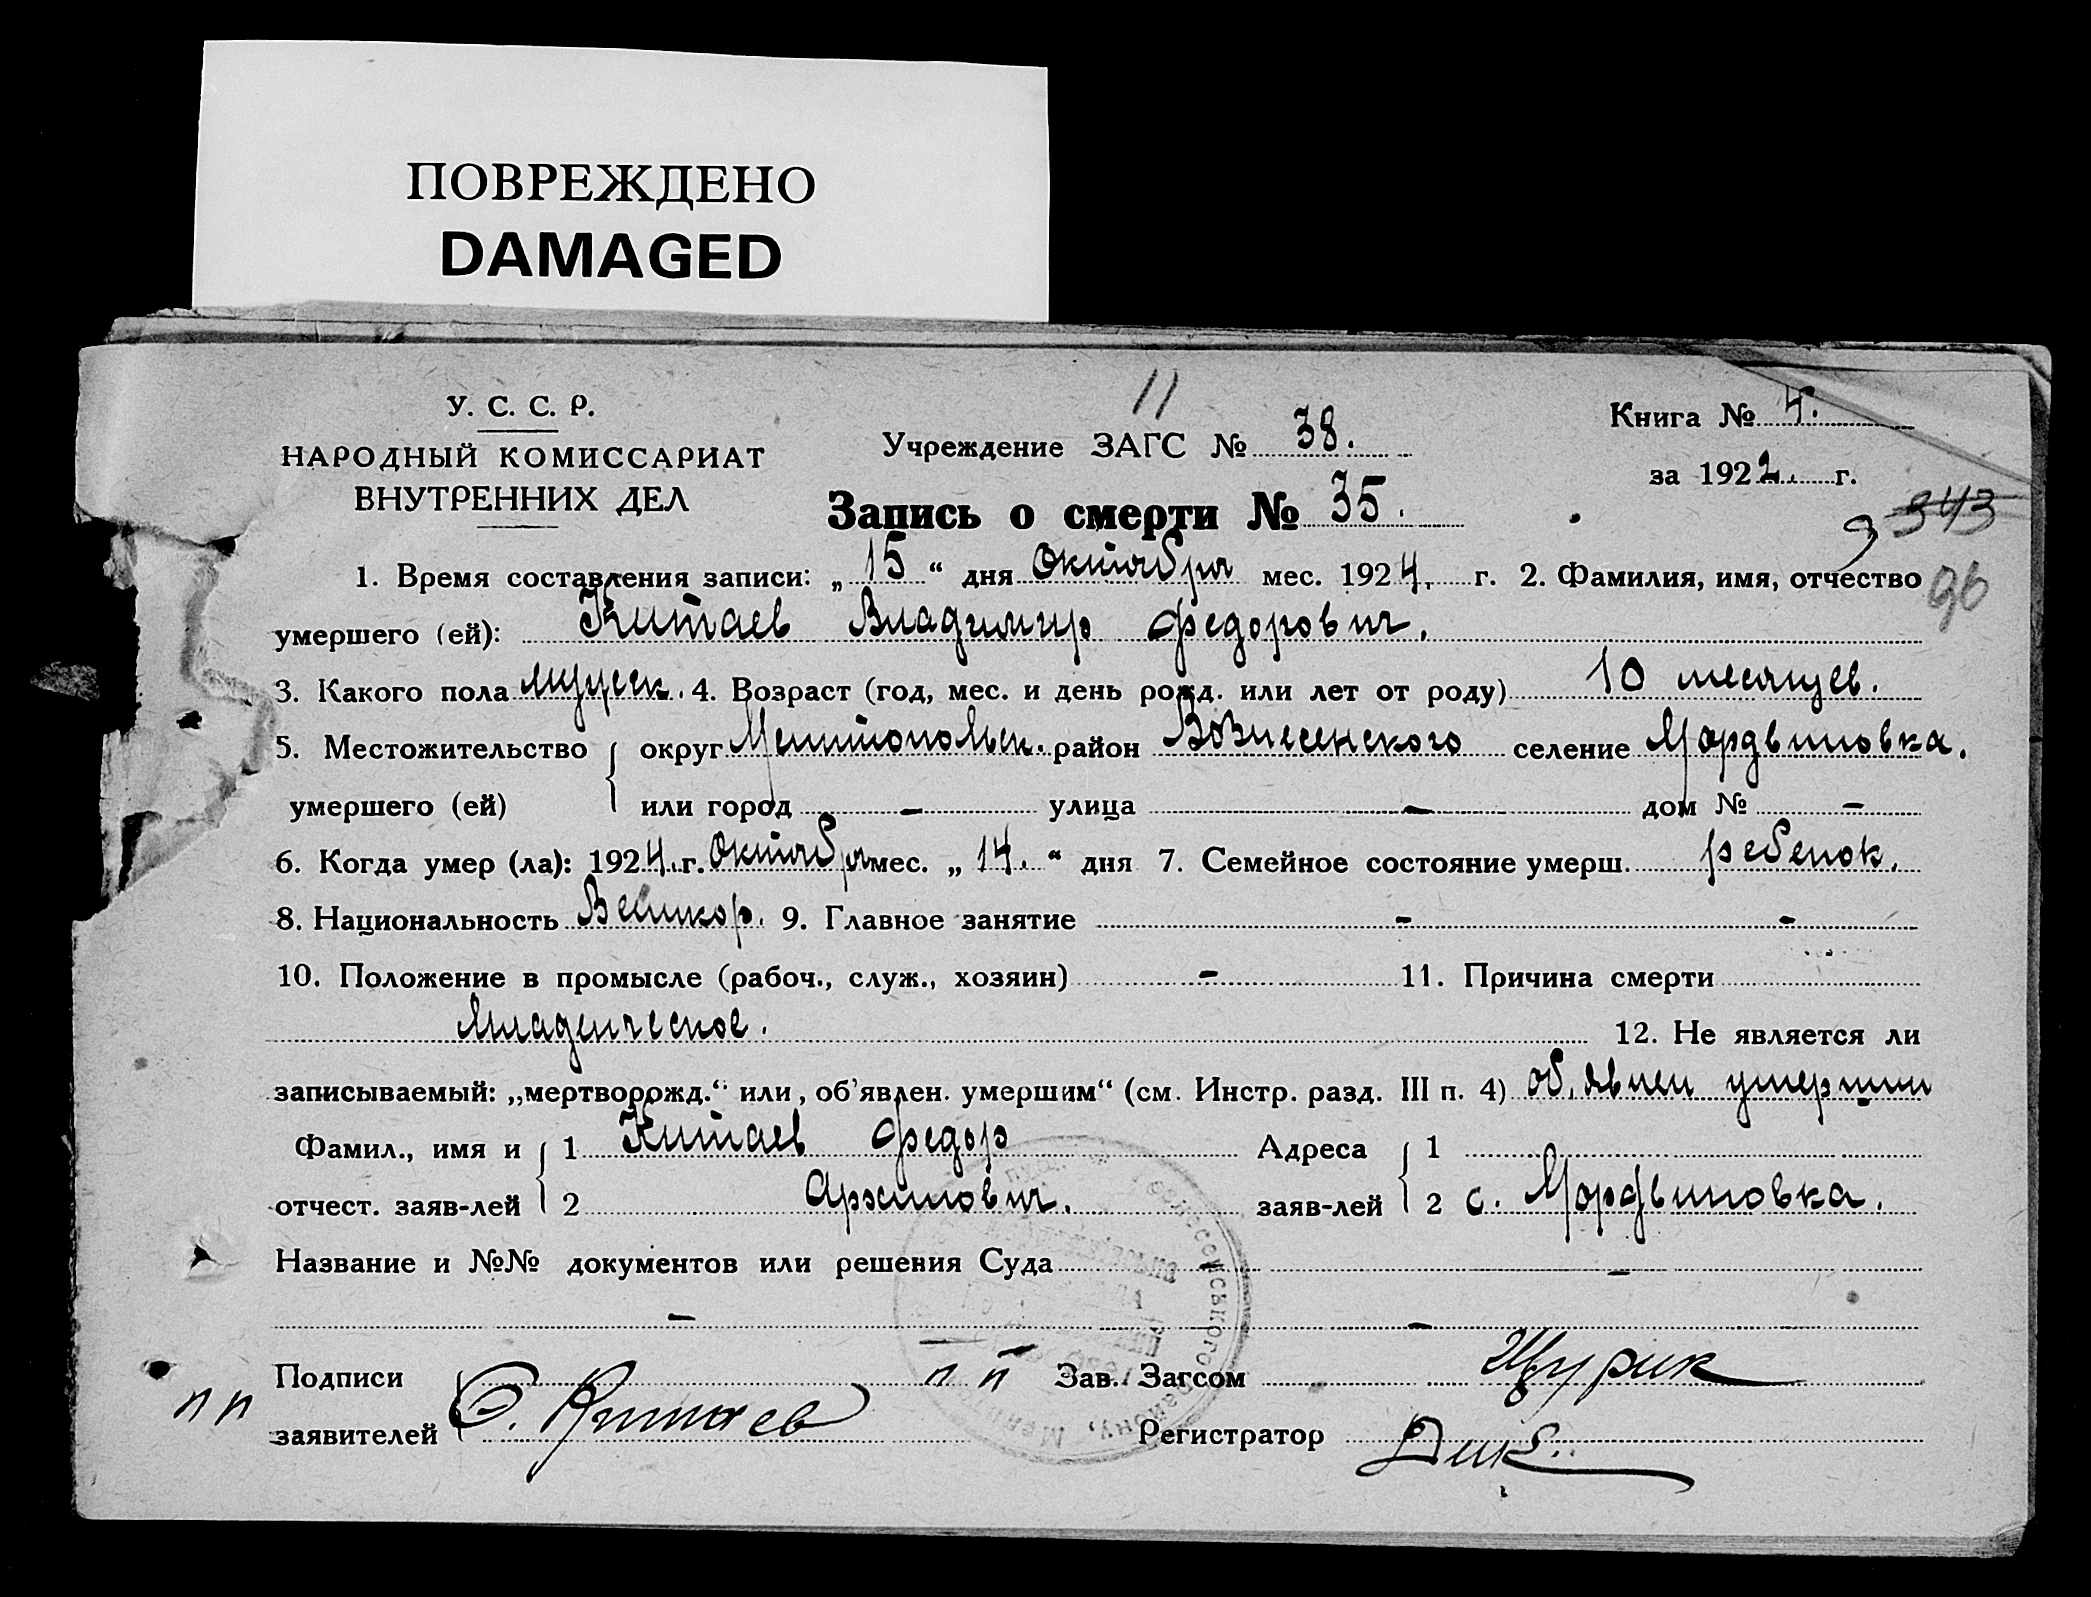 ПОВРЕЖДЕНО
DAMAGED
11
У. С. С. Р.
НАРОДНЫЙ КОМИССАРИАТ
ВНУТРЕННИХ ДЕЛ
Учреждение ЗАГС № 38.
Книга № 4.
за 1922. г.
Запись о смерти № 35.
343
96
1. Время составления записи: „ 15 “ дня Октября мес. 1924. г. 2. Фамилия, имя, отчество
умершего (ей): Китаев Владимир Федорович.
3. Какого пола мужск. 4. Возраст (год, мес. и день рожд. или лет от роду) 10 месяцев.
5. Местожительство округ Мелитопольск. район Вознесенского селение Мордвиновка.
умершего (ей) или город – улица – дом № –
6. Когда умер (ла): 1924. г. Октября мес. „ 14. “ дня 7. Семейное состояние умерш. ребенок.
8. Национальность Великор. 9. Главное занятие – –
10. Положение в промысле (рабоч., служ., хозяин) – 11. Причина смерти
Младенческое. 12. Не является ли
записываемый: „мертворожд.“ или, об'явлен. умершим“ (см. Инстр. разд. III п. 4) об,явлен умершим
Фамил., имя и 1 Китаев Федор Адреса 1
отчест. заяв-лей 2 Архипович. заяв-лей 2 с. Мордвиновка.
Название и №№ документов или решения Суда –
– –
Подписи п п Зав. Загсом Щурик
п п заявителей Китаев Регистратор Дик